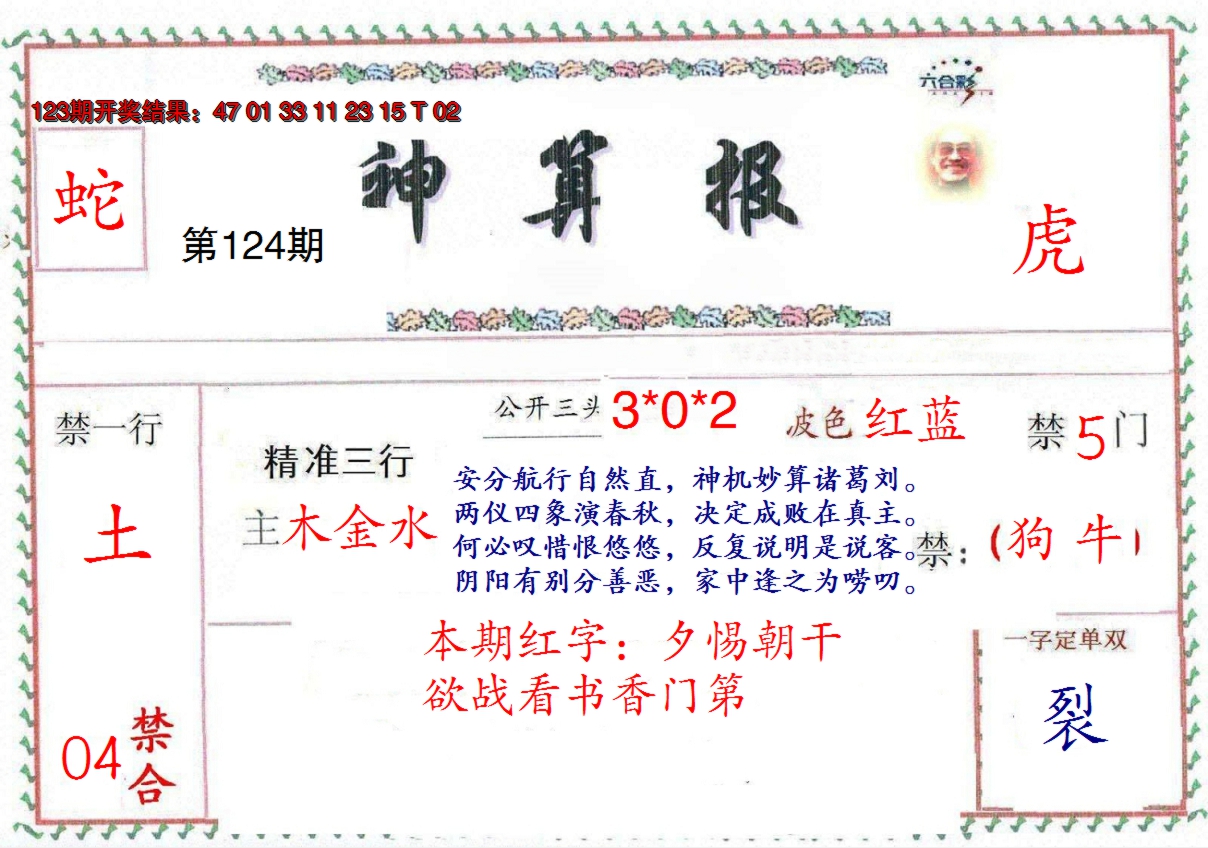 六合彩
123期开奖结果：47 01 33 11 23 15 T 02
神算报
蛇
第124期
虎
公开三头 3*0*2
波色 红蓝
禁5门
禁一行
土
精准三行
主木金水
安分航行自然直，神机妙算诸葛刘。
两仪四象演春秋，决定成败在真主。
何必叹惜恨悠悠，反复说明是说客。
阴阳有别分善恶，家中逢之为唠叨。
禁：(狗 牛)
本期红字：夕惕朝干
欲战看书香门第
一字定单双
裂
04禁合